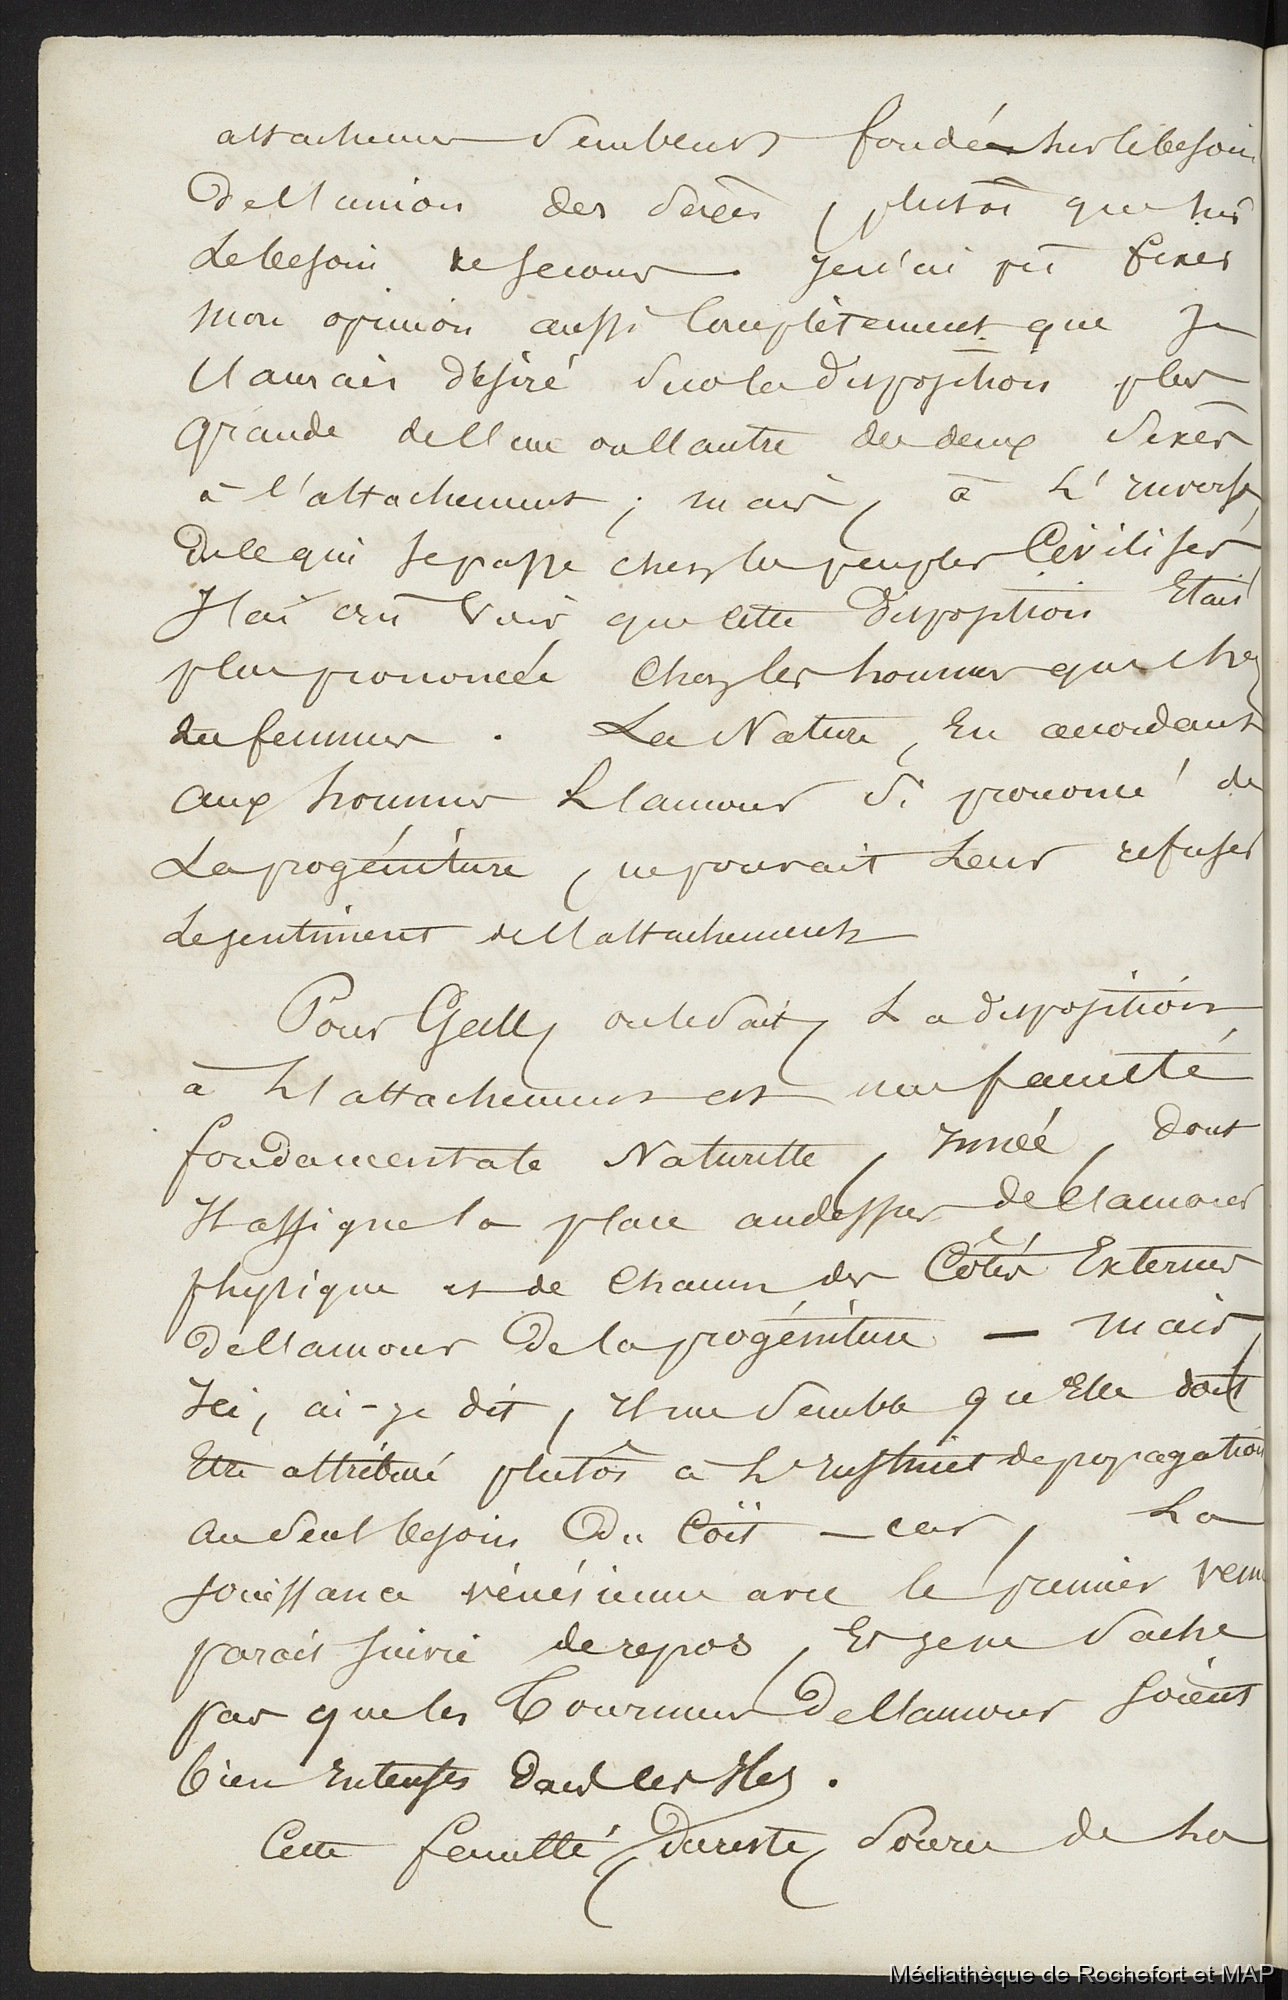 attachemens semblent fondés sur le besoin
de l'union des sexes, plutôt que sur
le besoin de secours. Je n'ai pû fixer
mon opinion aussi complètement que je
l'aurais désiré sur la disposition plus
grande de l'un ou l'autre des deux sexes
à l'attachement ; mais, à l'inverse
de ce qui se passe chez les peuples civilisés
j'ai crû voir que cette disposition était
plus prononcée chez les hommes que chez
les femmes. La Nature, En accordant
aux hommes l'amour si prononcé de
la progéniture, ne pouvait leur refuser
le sentiment de l'attachement
Pour Gall, on le sait, la disposition
à l'attachement est une faculté
fondamentale Naturelle, innée, dont
il assigne la place au dessus de l'amour
physique et de chacun des Côtés Externes
de l'amour de la progéniture — mais,
ici, ai-je dit, il me semble qu'Elle doit
Etre attribué plutôt à l'instinct de propagation
au seul besoin du Coït — car, la
jouissance vénérienne avec le premier venu
parait suivie de repos, Et je ne sache
pas que les tourmens de l'amour soient
bien intenses dans les Iles.
Cette faculté, du reste, source de la
Médiathèque de Rochefort et MAP